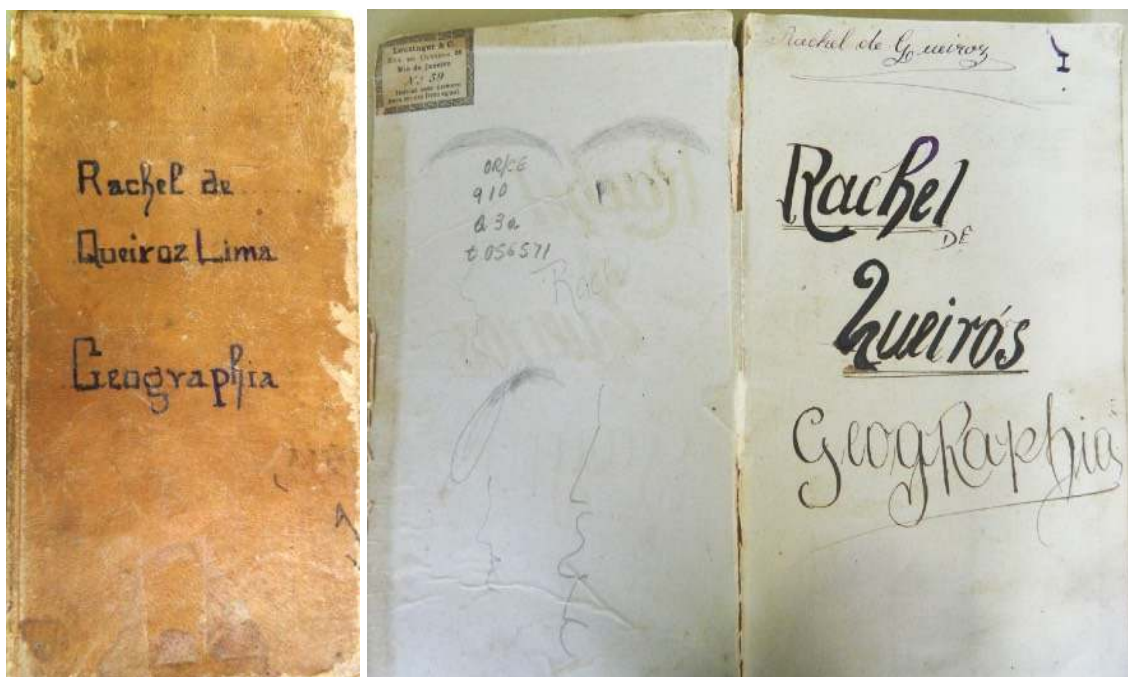 Rachel de
Queiroz Lima
Geographia
Leuzinger & C.
Rio de Janeiro
Nº 59
OR/CE
910
t 056571
Rach
Rachel de Queiroz
I
Rachel
DE
Queirós
Geographia